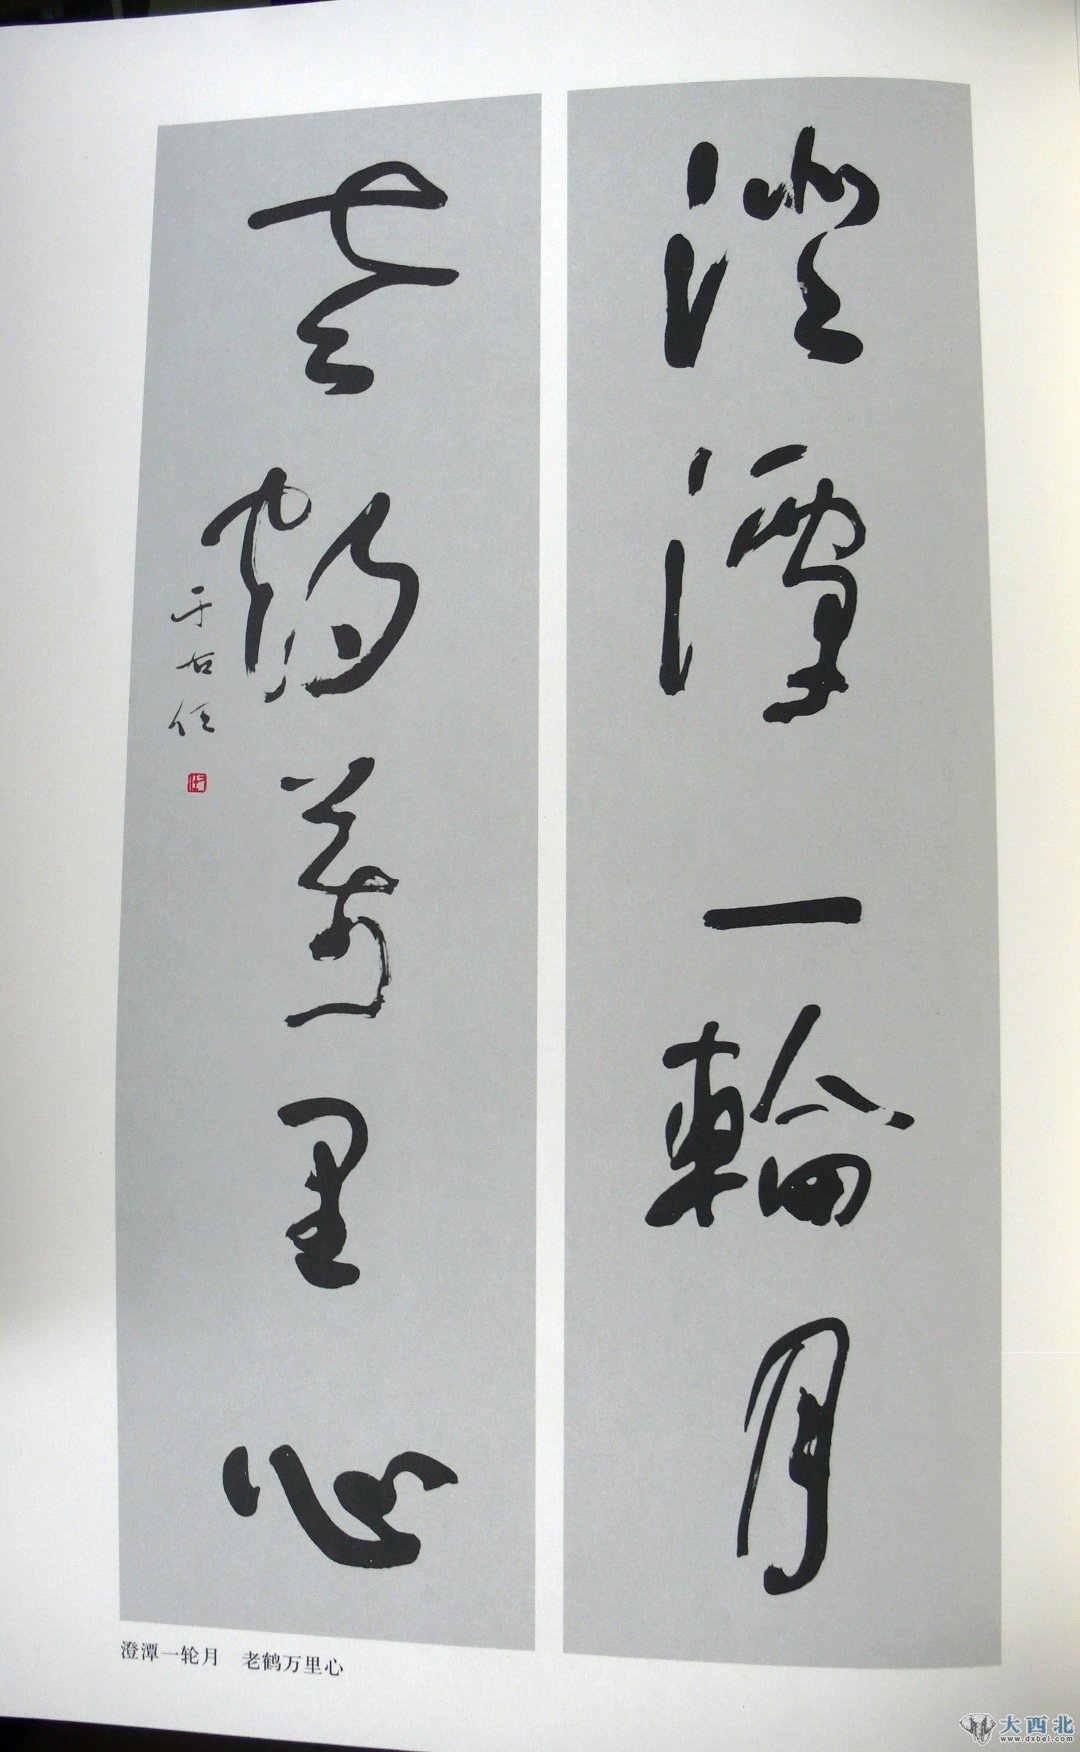 澄潭一輪月
老鶴萬里心
于右任
澄潭一轮月　老鹤万里心
大西北
www.dxbei.com